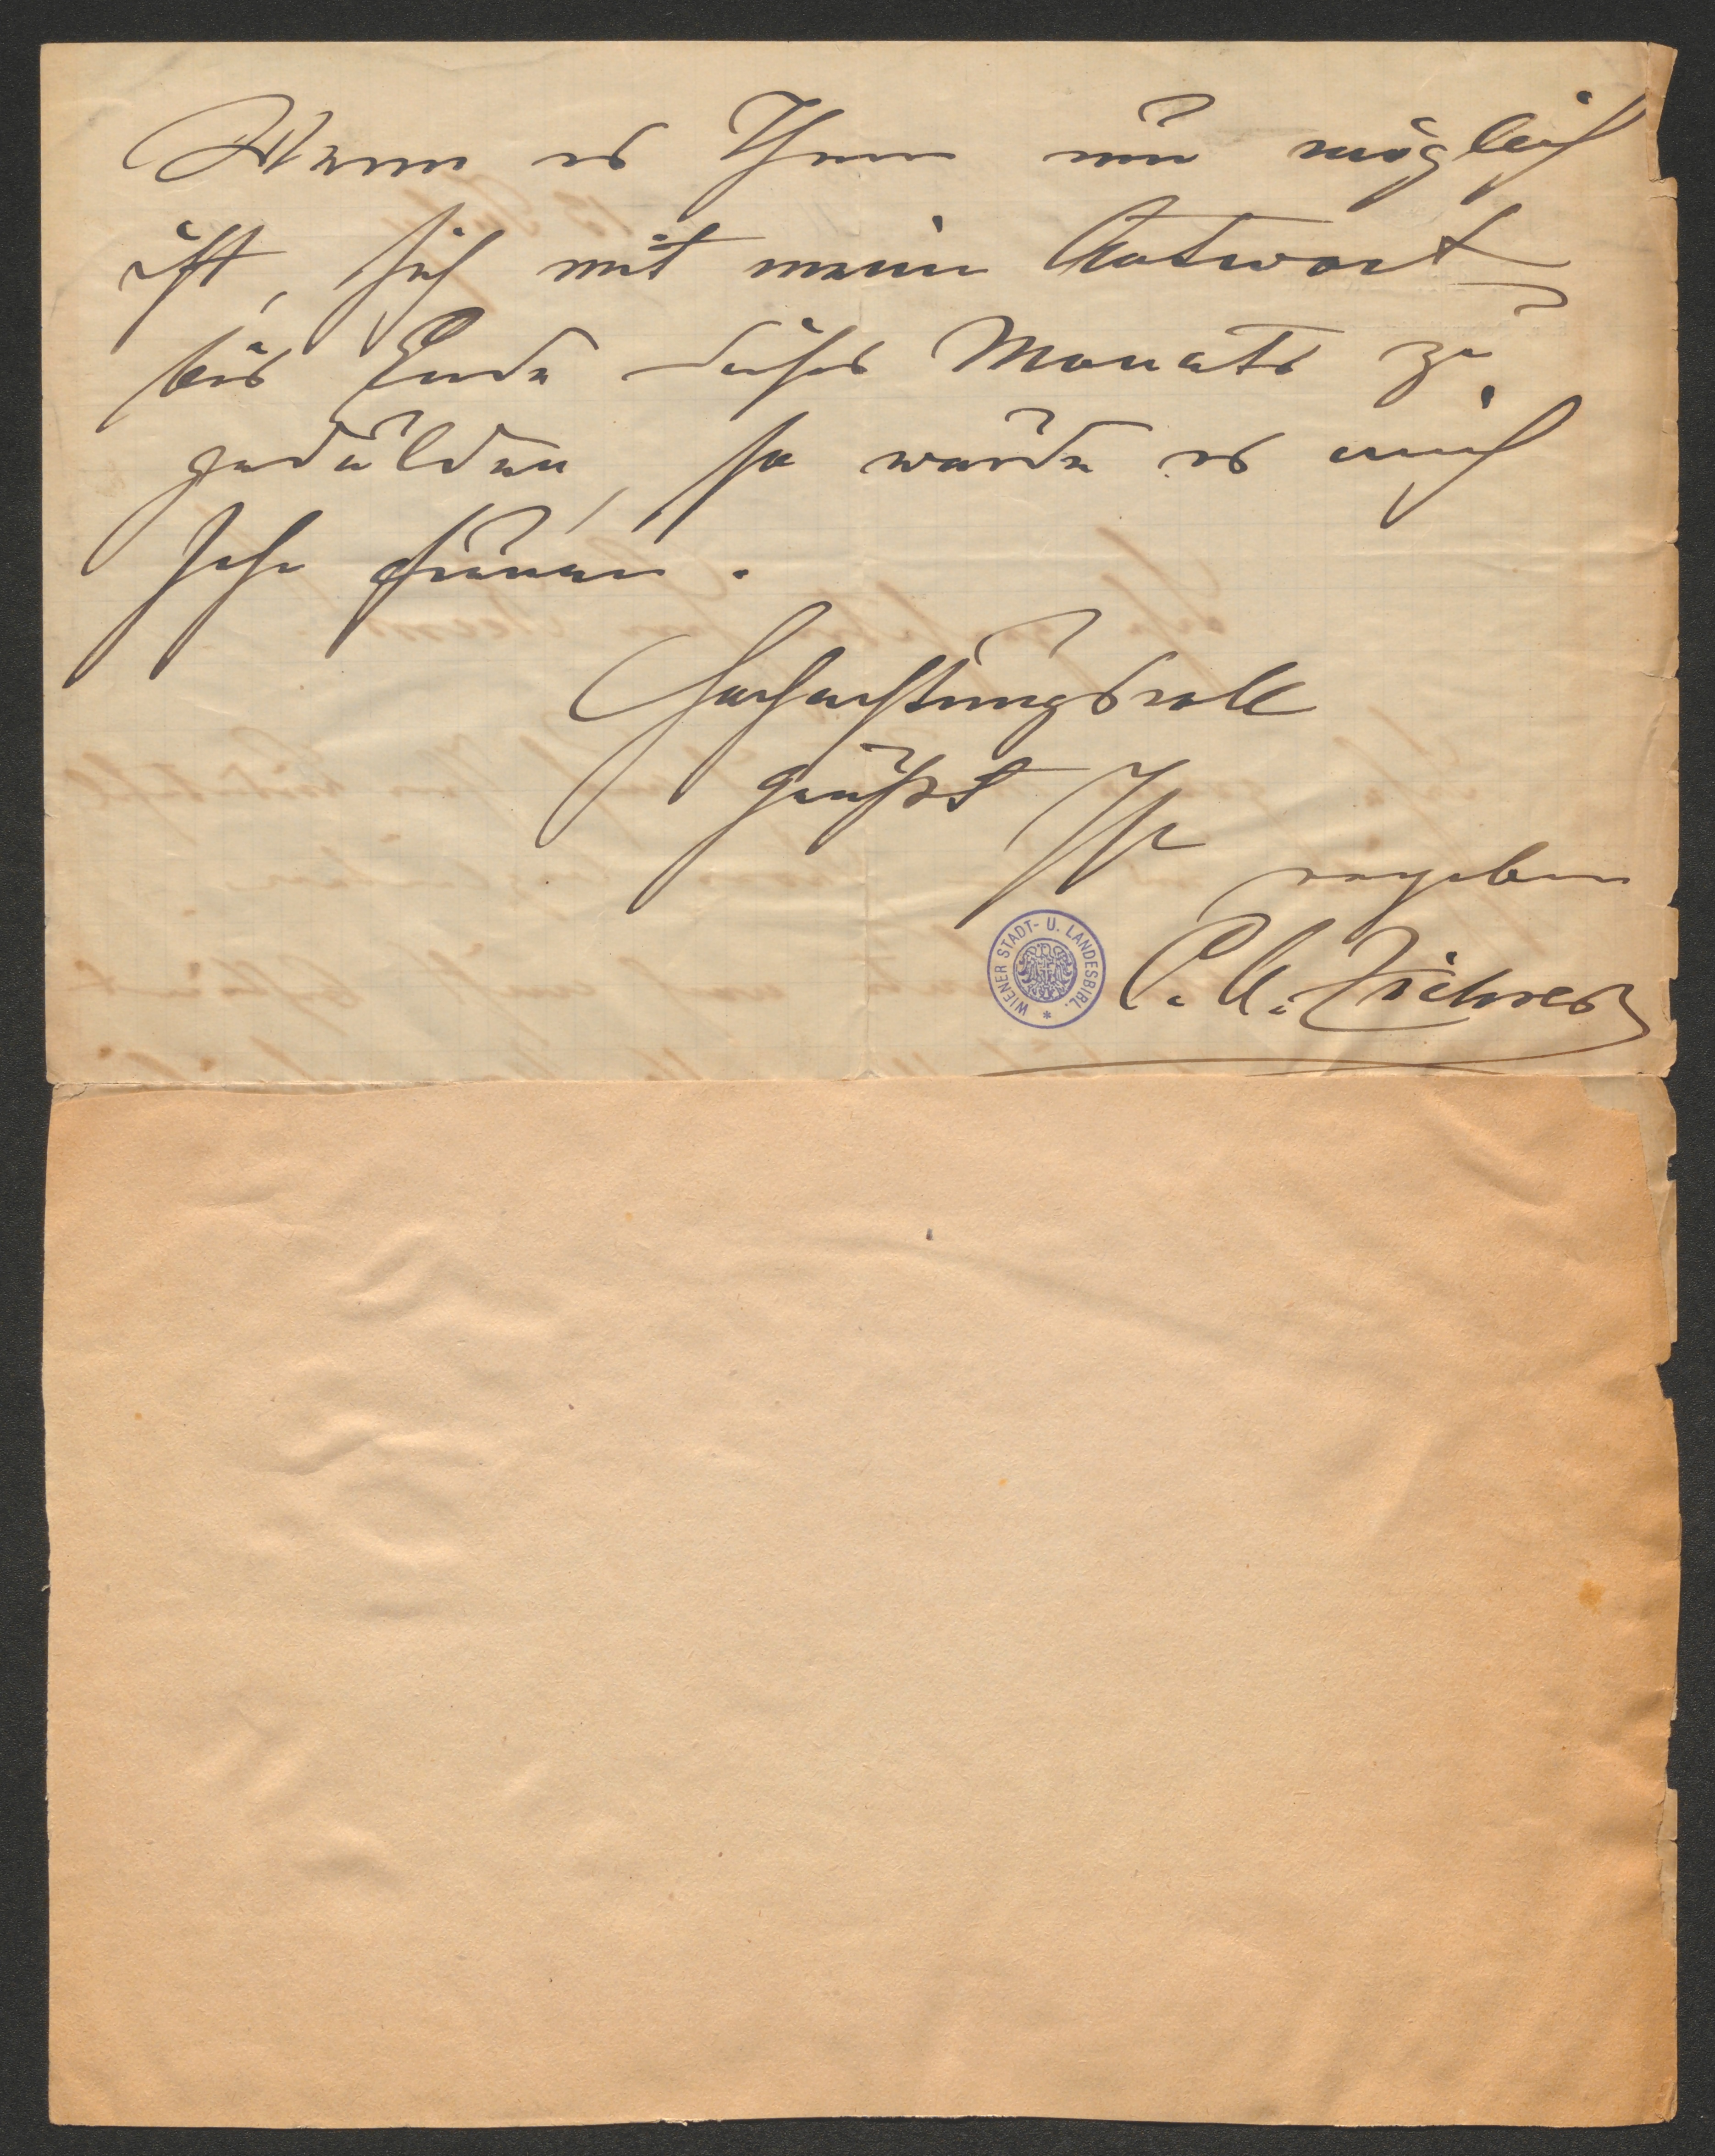 Wenn es Ihnen nun möglich
ist, sich mit meiner Antwort
bis Ende dieses Monats zu
gedulden, so würde es mich
sehr freuen.
Hochachtungsvoll
grüßt Ihr
ergebener
C. M. Ziehrer
WIENER STADT- U. LANDESBIBL. *